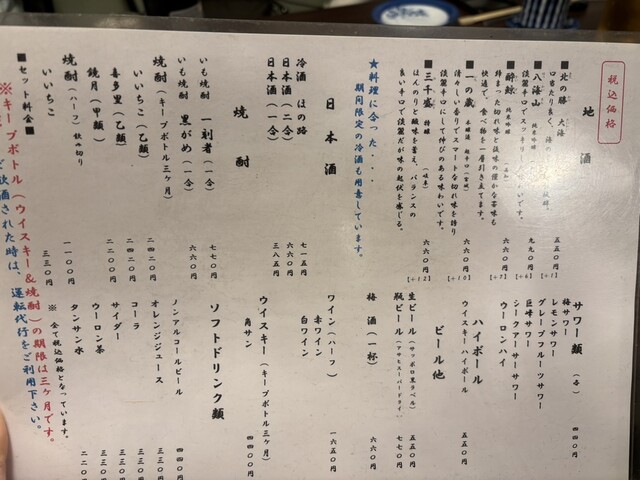 税込価格
地酒
■北の勝 大海
口当たり良く、
五五〇円
【+1】
■八海山 純米吟醸
淡麗辛口でスッキリ
九九〇円
【+6】
■酔鯨 純米吟醸
締まった切れ味と後味の僅かな苦味も
快適で、食べ物を一層引き立てます。
六六〇円
【+7】
■一の蔵 本醸造 超辛口(宮城)
清々しい香りでスマートな切れ味を誇り
淡麗辛口にして伸びのある味わいです。
六六〇円
【+10】
■三千盛 特醸(岐阜)
ほんのりと酸味を蓄え、バランスの
良い辛口で淡麗だが味の起伏を感じる。
六六〇円
【+12】
★料理に合った・・・
期間限定の冷酒も用意しています。
日本酒
冷酒 ほの路
七一五円
日本酒(二合)
六六〇円
日本酒(一合)
三八五円
焼酎
いも焼酎 一刻者(一合)
七七〇円
いも焼酎 黒がめ(一合)
六六〇円
焼酎(キープボトル三ヶ月)
いいちこ(乙類)
二四二〇円
喜多里(乙類)
二四二〇円
鏡月(甲類)
二二〇〇円
焼酎(ハーフ)飲み切り
いいちこ
一一〇〇円
■セット料金■
三三〇円
※キープボトル(ウイスキー&焼酎)の期限は三ヶ月です。
飲酒された時は、運転代行をご利用下さい。
サワー類(各)
四四〇円
梅サワー
レモンサワー
グレープフルーツサワー
巨峰サワー
シークアーサーサワー
ウーロンハイ
ハイボール
ウイスキーハイボール
五五〇円
ビール他
生ビール(サッポロ黒ラベル)
五五〇円
瓶ビール(アサヒスーパードライ)
七七〇円
梅酒(一杯)
六六〇円
ワイン(ハーフ)
赤ワイン
白ワイン
一六五〇円
ウイスキー(キープボトル三ヶ月)
角サン
四四〇〇円
ソフトドリンク類
ノンアルコールビール
四四〇円
オレンジジュース
三三〇円
コーラ
三三〇円
サイダー
三三〇円
ウーロン茶
二二〇
タンサン水
二二〇
※ 全て税込価格となっています。